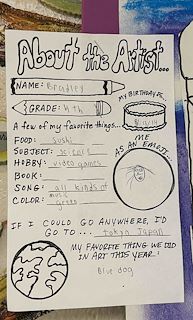 About the Artist...
NAME: Bradley
MY BIRTHDAY
GRADE: 4th
A few of my favorite things...
ME
AS AN EMOJI...
FOOD: Sushi
SUBJECT: science
HOBBY: video games
BOOK:
SONG: all kinds of
music
COLOR: green
IF I COULD GO ANYWHERE, I'D
GO TO... tokyo Japan
MY FAVORITE THING WE DID
IN ART THIS YEAR:
Blue dog